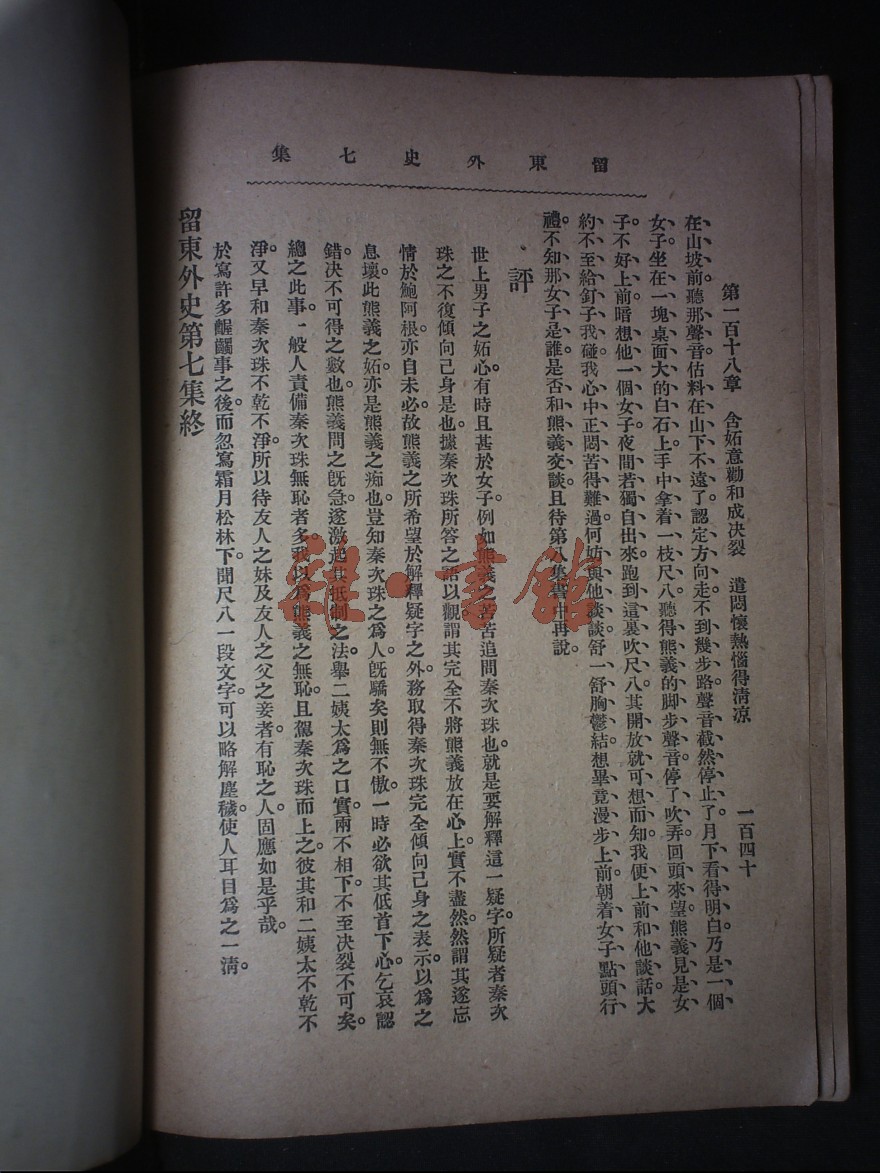 留東外史七集
第一百十八章　含妬意勸和成決裂　遣悶懷熱惱得淸凉　一百四十
在山坡前聽那聲音估料在山下不遠了、認定方向走不到幾步路、聲音截然停止了。月下看得明白、乃是一個、
女子坐在一塊桌面大的白石上、手中拿着一枝尺八、聽得熊義的脚步聲音、停了吹弄、回頭來望、熊義見是女、
子、不好上前、暗想他一個女子、夜間若獨自出來、跑到這裏吹尺八、其開放就可想而知、我便上前和他談話、大
約不至給釘子我碰、我心中正悶苦得難過、何妨與他談談、舒一舒胸鬱結、想畢竟漫步上前、朝着女子點頭行、
禮。不知那女子是誰、是否和熊義交談、且待第八集書中再說。
評
世上男子之妬心。有時且甚於女子。例如熊義之苦苦追問秦次珠也。就是要解釋這一疑字。所疑者秦次
珠之不復傾向己身是也。據秦次珠所答之語以觀。謂其完全不將熊義放在心上。實不盡然。然謂其遂忘
情於鮑阿根。亦自未必。故熊義之所希望於解釋疑字之外。務取得秦次珠完全傾向己身之表示。以爲之
息壤。此熊義之妬。亦是熊義之痴也。豈知秦次珠之爲人。旣驕矣。則無不傲。一時必欲其低首下心。乞哀認
錯。決不可得之數也。熊義問之旣急。遂激起其抵制之法。舉二姨太爲之口實。兩不相下。不至決裂不可矣。
總之此事。一般人責備秦次珠無恥者多。我以爲熊義之無恥。且駕秦次珠而上之。彼其和二姨太不乾不
淨。又早和秦次珠不乾不淨。所以待友人之妹及友人之父之妾者。有恥之人。固應如是乎哉。
於寫許多齷齪事之後。而忽寫霜月松林下。聞尺八一段文字。可以略解塵穢。使人耳目爲之一淸。
留東外史第七集終
雒·書館